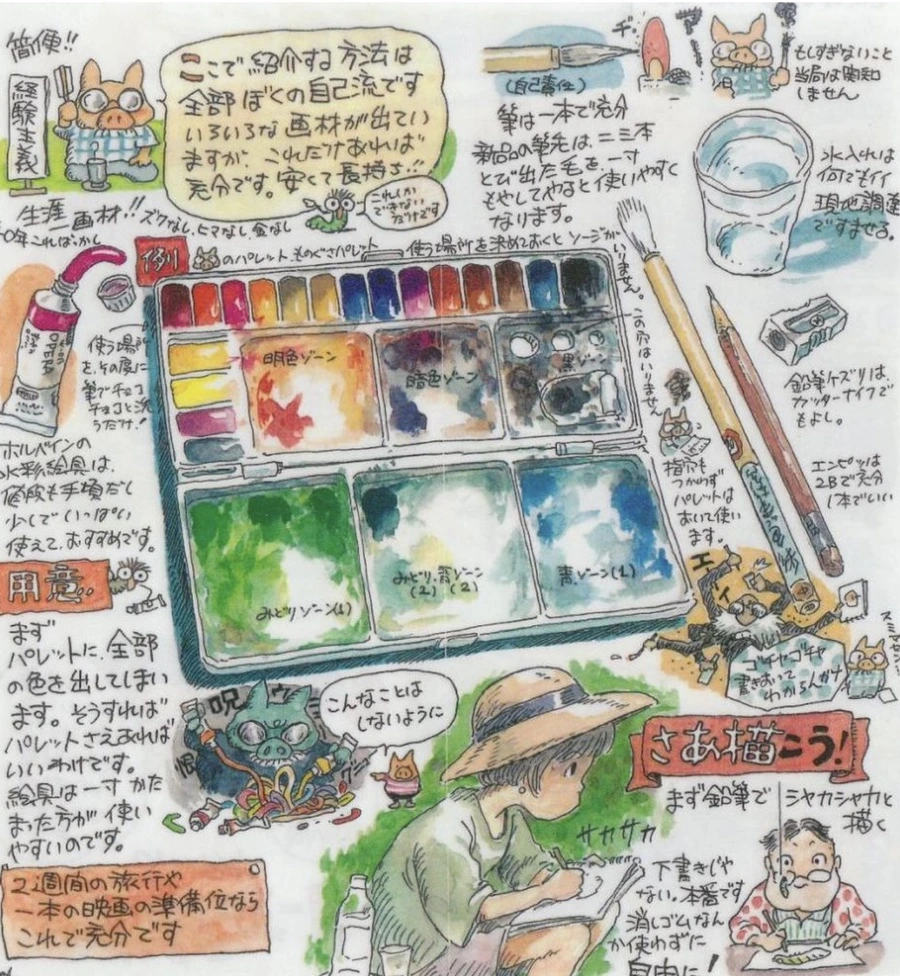 簡便!!
経験主義
ここで紹介する方法は
全部ぼくの自己流です
いろいろな画材が出てい
ますが、これだけあれば
充分です。安くて長持ち!!
これしか
できない
だけです
生涯画材!! ズクなし、ヒマなし、金なし
0年こればっかし
(自己責任)
ヂ
もしすぎないこと
当局は関知
しません
筆は一本で充分
新品の筆先は、二三本
とび出た毛を、一寸
もやしてやると使いやすく
なります。
水入れは
何でもイイ
現地調達
ですませる。
例
のパレット、ものぐさパレット
使う場所を決めておくとソージがいりません。
使う場所
を、その度に
筆でチョコ
チョコと洗
うだけ!
OPERA
明色ゾーン
暗色ゾーン
黒ゾーン
この穴はいりません
みどりゾーン(1)
みどり、青ゾーン
(2) (2)
青ゾーン(1)
ホルベインの
水彩絵具は、
値段も手頃だし
少しでいっぱい
使えて、おすすめです。
鉛筆ケズリは、
カッターナイフで
もよし。
エンピツは
2Bで充分
1本でいい
指穴も
つかわず
パレットは
おいて使い
ます。
用意..
まず
パレットに、全部
の色を出してしまい
ます。そうすれば
パレットさえあれば
いいわけです。
絵具は一寸かた
まった方が使い
やすいのです。
呪
恨
こんなことは
しないように
エイ
ゴチャゴチャ
書きおって
わからんわナ
スミマセン
さあ描こう!
まず鉛筆で シャカシャカと
描く
サカサカ
下書きじゃ
ない。本番です
消しゴムなん
か使わずに
自由に!
2週間の旅行や
一本の映画の準備位なら
これで充分です